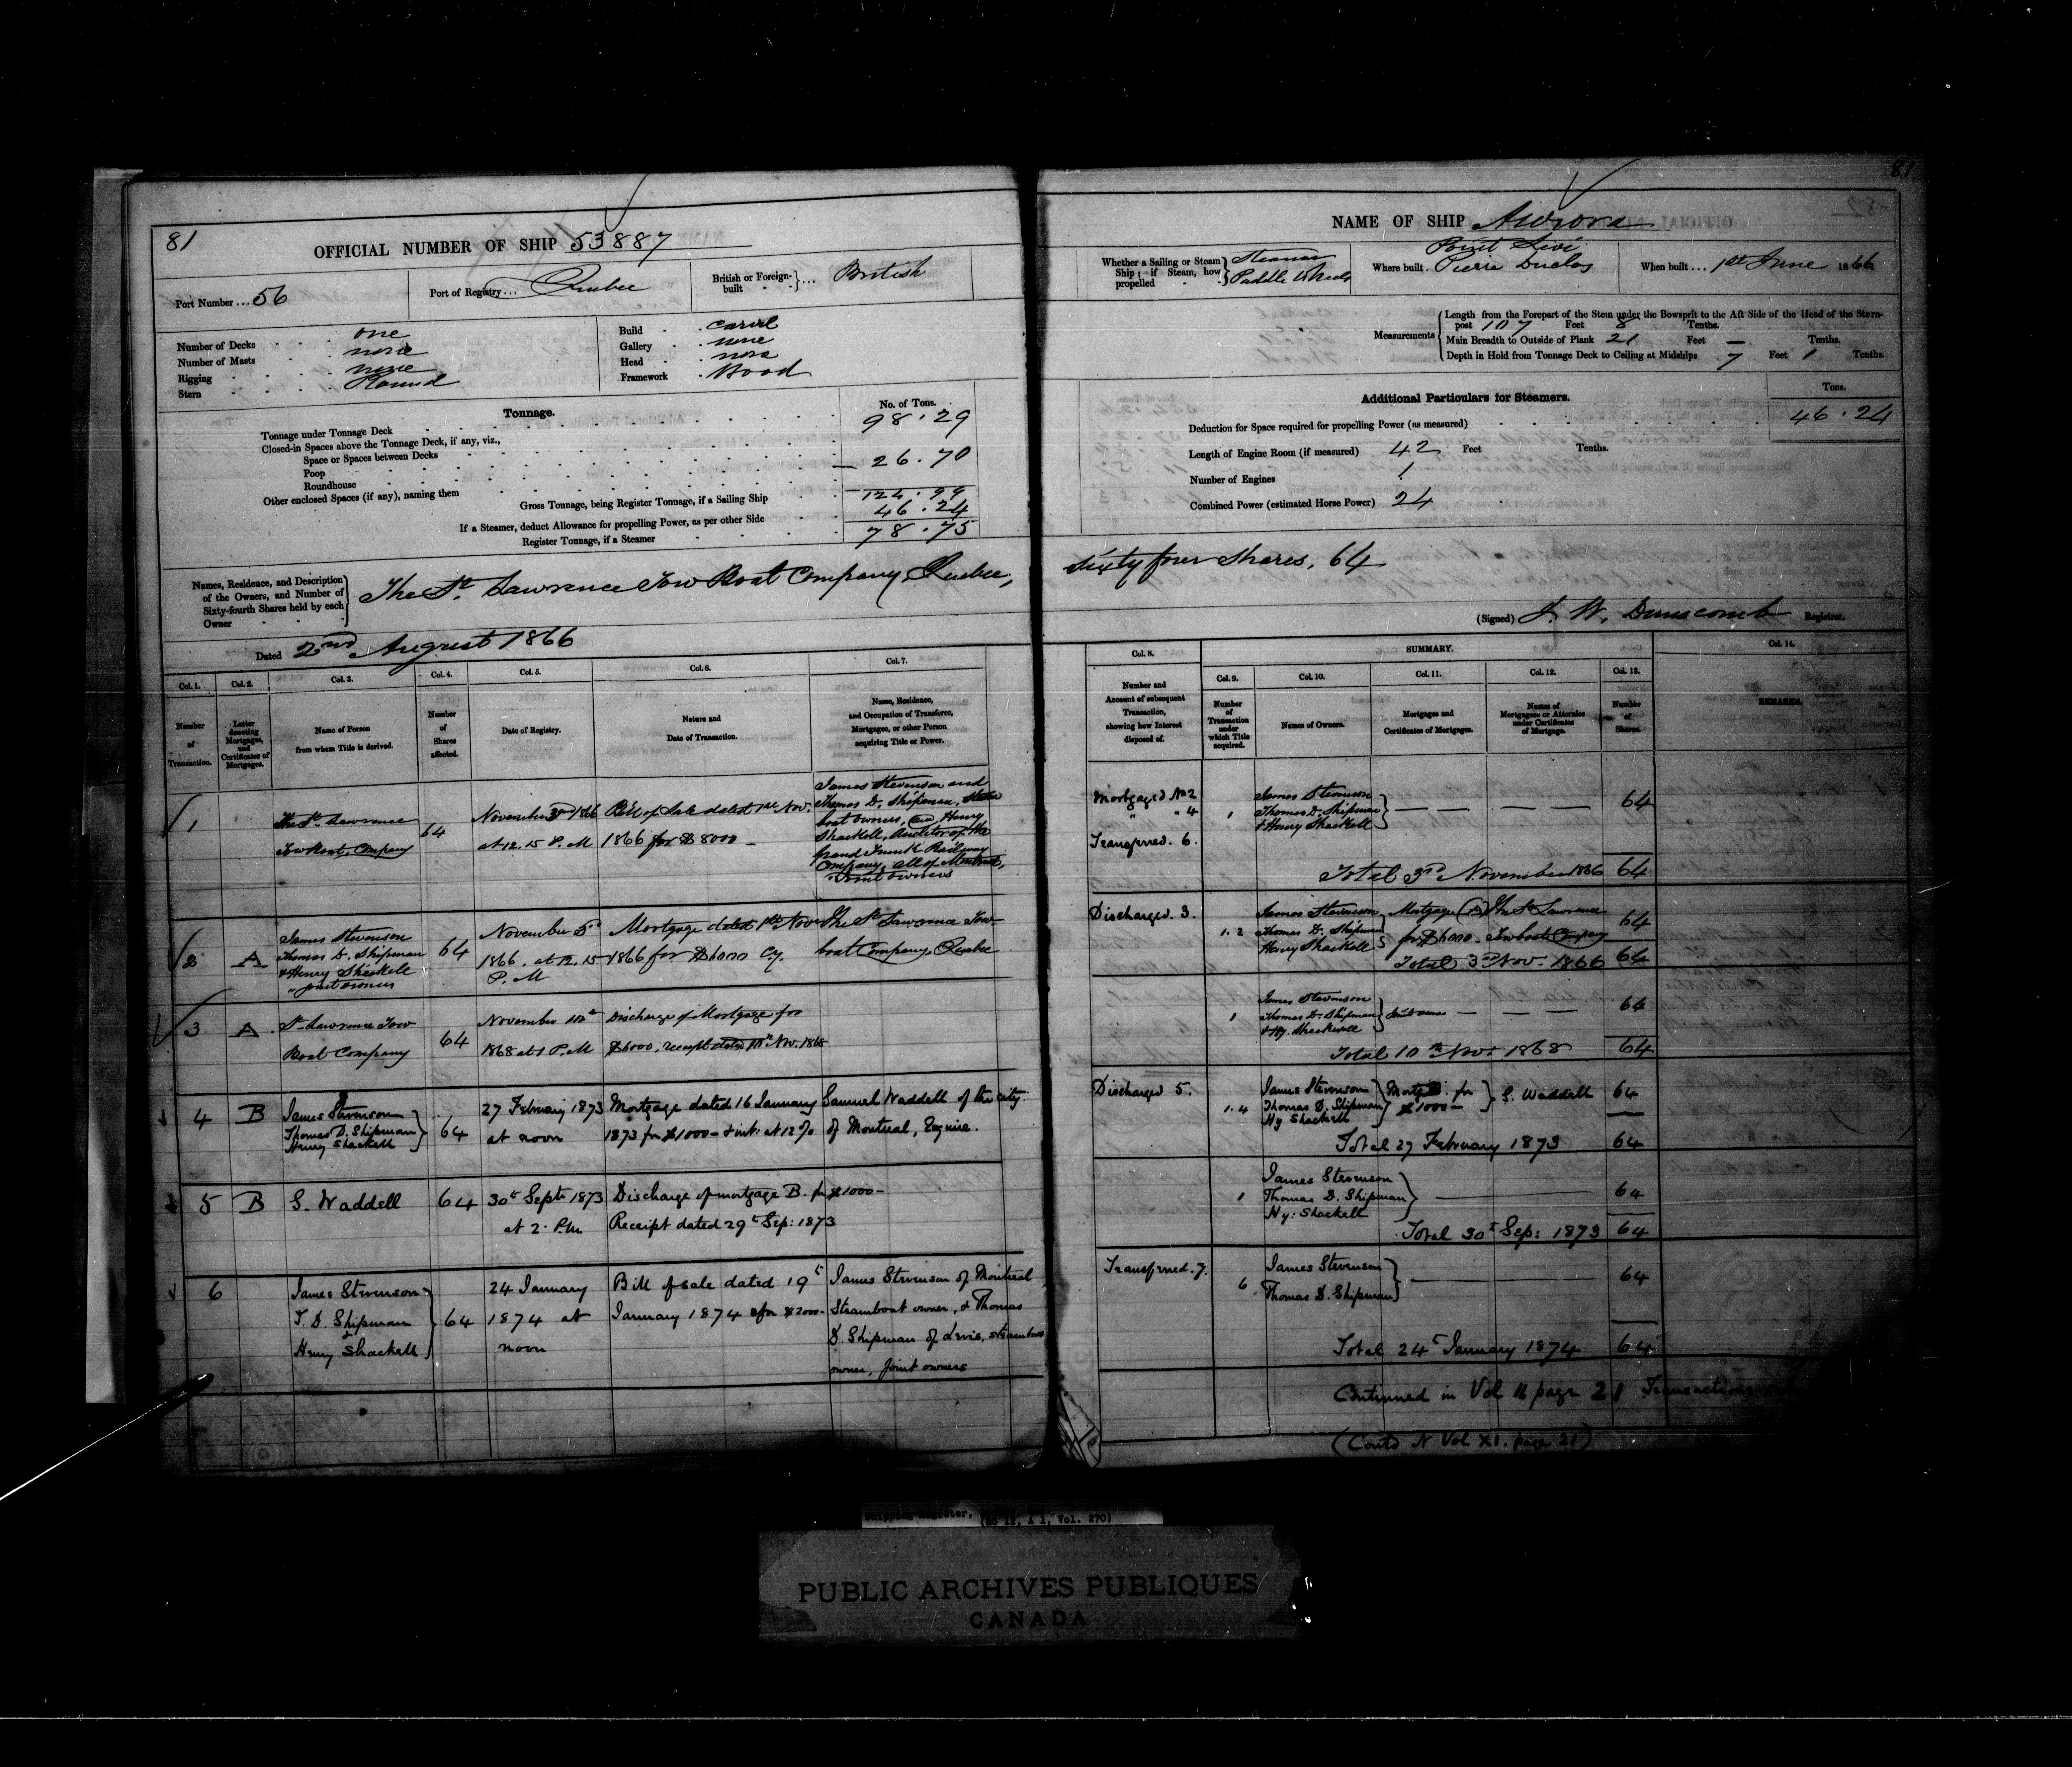 81
OFFICIAL NUMBER OF SHIP 53887
Port Number ... 56
Port of Registry ... Quebec
British or Foreign-built ... British
Number of Decks one
Number of Masts none
Rigging none
Stern Round
Build carvel
Gallery none
Head none
Framework Wood
Tonnage.
No. of Tons.
Tonnage under Tonnage Deck 98.29
Closed-in Spaces above the Tonnage Deck, if any, viz.,
Space or Spaces between Decks
Poop
— 26.70
Roundhouse
Other enclosed Spaces (if any), naming them
Gross Tonnage, being Register Tonnage, if a Sailing Ship 124.99
If a Steamer, deduct Allowance for propelling Power, as per other Side 46.24
Register Tonnage, if a Steamer 78.75
Names, Residence, and Description
of the Owners, and Number of
Sixty-fourth Shares held by each
Owner
The St. Lawrence Tow Boat Company, Quebec,
Dated 2nd August 1866
Col. 1. Col. 2. Col. 3. Col. 4. Col. 5. Col. 6. Col. 7.
Number of Transaction.
Letter denoting Mortgages, and Certificates of Mortgages.
Name of Person from whom Title is derived.
Number of Shares affected.
Date of Registry.
Nature and Date of Transaction.
Name, Residence, and Occupation of Transferee, Mortgagee, or other Person acquiring Title or Power.
1
The St. Lawrence
Tow Boat Company
64
November 3rd 1866
at 12.15 P.M
Bill of Sale dated 1st Nov.
1866 for $8000 —
James Stevenson and
Thomas D. Shipman, Steam
boat owners, and Henry
Shackell, Auditor of the
Grand Trunk Railway
Company, all of Montreal,
"Joint owners
2 A
James Stevenson
Thomas D. Shipman
& Henry Shackell
"joint owners
64
November 3rd
1866. at 12.15
P.M
Mortgage dated 1st Nov
1866 for $6000 Cy.
The St Lawrence Tow-
boat Company, Quebec
3 A
St Lawrence Tow
Boat Company
64
November 10th
1868 at 1 P.M
Discharge of Mortgage for
$6000, receipt dated 10th Nov. 1868
4 B
James Stevenson
Thomas D. Shipman
Henry Shackell
64
27 February 1873
at noon
Mortgage dated 16 January
1873 for $1000 — & int: at 12%
Samuel Waddell of the city
of Montreal, Esquire.
5 B
S. Waddell
64
30t Sept 1873
at 2. P.M.
Discharge of mortgage B. for $1000 —
Receipt dated 29t Sep: 1873
6
James Stevenson
T. D. Shipman
&
Henry Shackell
64
24 January
1874 at
noon
Bill of sale dated 19t
January 1874 for $2000 —
James Stevenson of Montreal
Steamboat owner, & Thomas
D. Shipman of Levis, steamboat
owner, joint owners
81
NAME OF SHIP Aurora
Whether a Sailing or Steam Ship; if Steam, how propelled
Steamer
Paddle Wheels
Where built. Point Levi
Pierre Duclos
When built ... 1st June 1866
Measurements
Length from the Forepart of the Stem under the Bowsprit to the Aft Side of the Head of the Stern-
post 107 Feet 8 Tenths.
Main Breadth to Outside of Plank 21 Feet — Tenths.
Depth in Hold from Tonnage Deck to Ceiling at Midships 7 Feet 1 Tenths.
Additional Particulars for Steamers.
Tons.
Deduction for Space required for propelling Power (as measured) 46.24
Length of Engine Room (if measured) 42 Feet Tenths.
Number of Engines 1
Combined Power (estimated Horse Power) 24
Sixty four Shares, 64
(Signed) J. W. Dunscomb Registrar.
Col. 8.
SUMMARY.
Col. 14.
Col. 9. Col. 10. Col. 11. Col. 12. Col. 13.
Number and Account of subsequent Transaction, showing how Interest disposed of.
Number of Transaction under which Title acquired.
Names of Owners.
Mortgages and Certificates of Mortgages.
Names of Mortgagees or Attornies under Certificates of Mortgage.
Number of Shares.
REMARKS.
Mortgaged No 2
" " 4
Transferred. 6.
1
James Stevenson
Thomas D. Shipman
& Henry Shackell
64
Total 3rd November 1866 64
Discharged. 3.
1.2
James Stevenson
Thomas D. Shipman
Henry Shackell
Mortgage (A)
for $6000 —
The St Lawrence
Towboat Company
64
Total 3rd Nov. 1866 64
1
James Stevenson
Thomas D. Shipman
& Hy. Shackell
Joint owners
64
Total 10th Nov. 1868 64
Discharged 5.
1.4
James Stevenson
Thomas D. Shipman
Hy Shackell
Mortg. B. for
$1000 —
S. Waddell
64
Total 27 February 1873 64
1
James Stevenson
Thomas D. Shipman
Hy: Shackell
64
Total 30t Sep: 1873 64
Transferred. 7.
6.
James Stevenson
Thomas D. Shipman
64
Total 24t January 1874 64
Continued in Vol 11 page 21 Transactions
(Contd in Vol XI. page 21)
Shipping Register,
(RG 12, A 1, Vol. 270)
PUBLIC ARCHIVES PUBLIQUES
CANADA